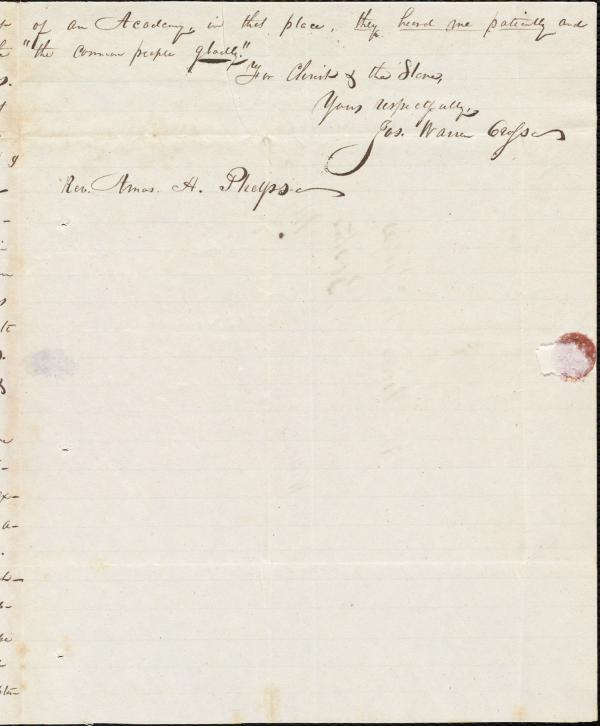 of an Academy, in this place, they heard me patiently and
"the common people gladly."
For Christ & the Slave,
Yours respectfully,
Jos. Warren Cross
Rev. Amos. A. Phelps